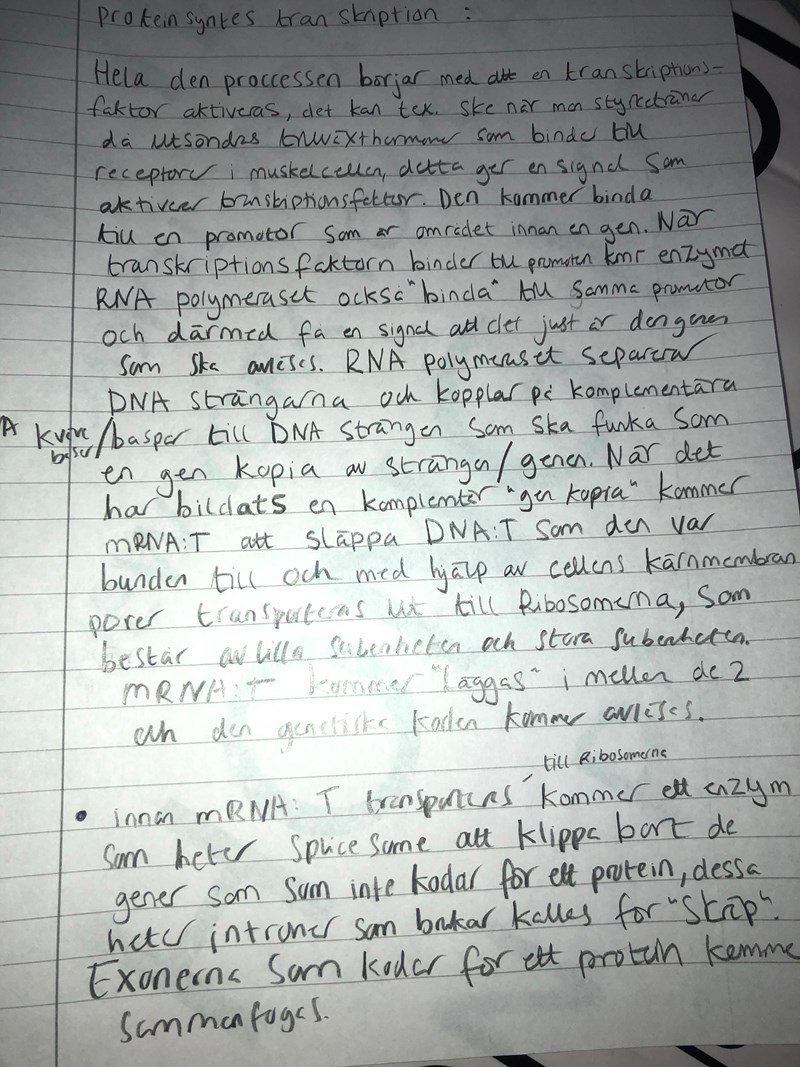 Proteinsyntes transkription :
Hela den proccessen börjar med att en transkriptions-
faktor aktiveras, det kan tex. ske när man styrketränar
då utsöndras tillväxthormoner som binder till
receptorer i muskelcellen, detta ger en signal som
aktiverar transkiptionsfaktor. Den kommer binda
till en promotor som är området innan en gen. När
transkriptionsfaktorn binder till promoten kmr enzymet
RNA polymeraset också "binda" till samma promotor
och därmed få en signal att det just är den genen
som ska avläses. RNA polymeraset separerar
DNA strängarna och kopplar på komplementära
A kväve baser/baspar till DNA strängen som ska funka som
en gen kopia av strängen/genen. När det
har bildats en komplemtär "gen kopia" kommer
mRNA:T att släppa DNA:T som den var
bunden till och med hjälp av cellens kärnmembran
porer transporteras ut till Ribosomerna, som
består av lilla subenheten och stora subenheten.
mRNA:T kommer "läggas" i mellan de 2
och den genetiska koden kommer avläses.
• innan mRNA:T transporteras till Ribosomerna kommer ett enzym
som heter splicesome att klippa bort de
gener som som inte kodar för ett protein, dessa
heter introner som brukar kallas for "skräp".
Exonerna som kodar för ett protein komme
sammanfogas.